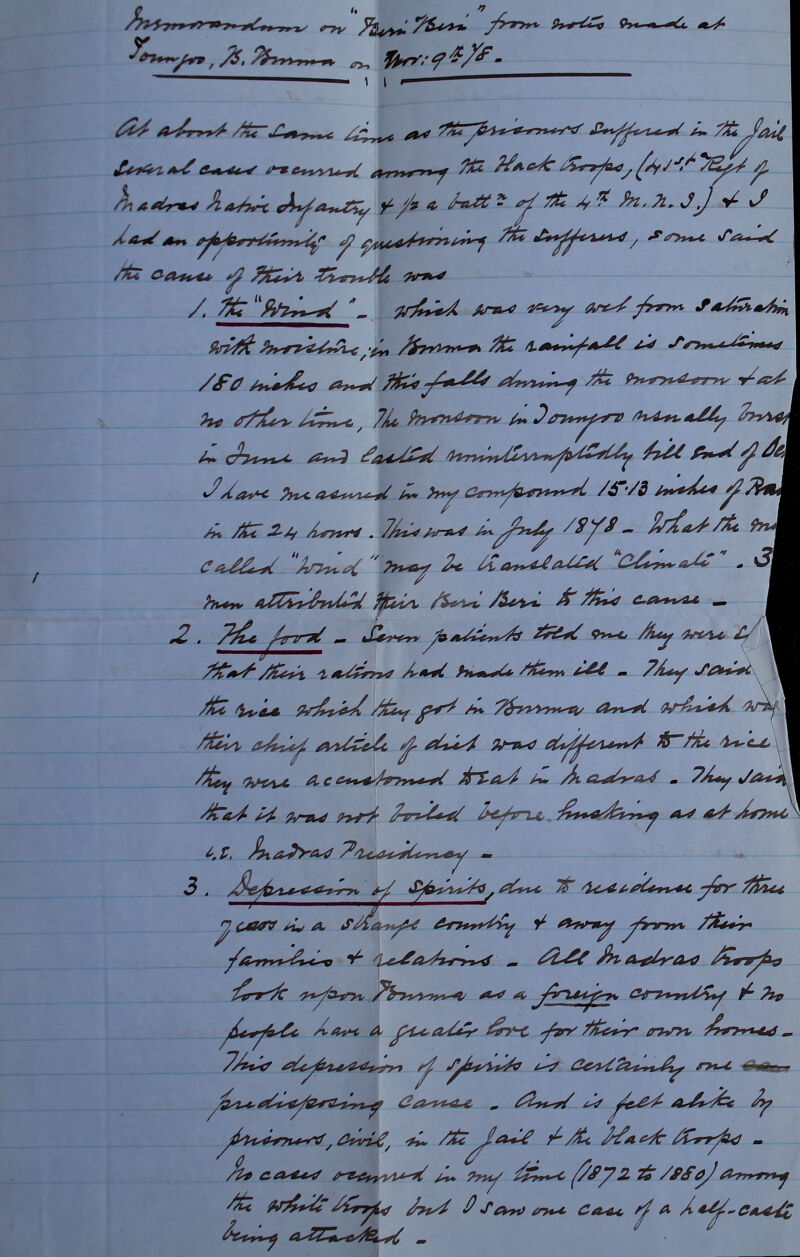 Memorandum on "Beri Beri" from notes made at
Toungoo, B. Burma on Nov: 9th 78.
At about the same time as the prisoners suffered in the Jail
several cases occurred among the Black troops, (41st Regt of
Madras Native Infantry & ½ a battn of the 4th M. N. I.) & I
had an opportunity of questioning the sufferers, some said
the cause of their trouble was
1. The "Wind" - which was very wet from saturation
with moisture; in Burma the rainfall is sometimes
180 inches and this falls during the monsoon & at
no other time, The monsoon in Toungoo usually burst
in June and lasted uninterruptedly till end of Oc
I have measured in my compound 15.13 inches of Ra
in the 24 hours. This was in July 1878 - What the me
called "wind" may be translated "Climate". 3
men attributed their Beri Beri to this cause -
2. The food - Seven patients told me they were
that their rations had made them ill - They said
the rice which they got in Burma and which was
their chief article of diet was different to the rice
they were accustomed to eat in Madras - They said
that it was not boiled before husking as at home
i.e. Madras Presidency -
3. Depression of Spirits, due to residence for three
years in a strange country & away from their
families & relations - All Madras troops
look upon Burma as a foreign country & no
people have a greater love for their own homes -
This depression of spirits is certainly one
predisposing cause - And is felt alike by
prisoners, civil, in the Jail & the black troops -
No cases occurred in my time (1872 to 1880) among
the white troops but I saw one case of a half-caste
being attacked -